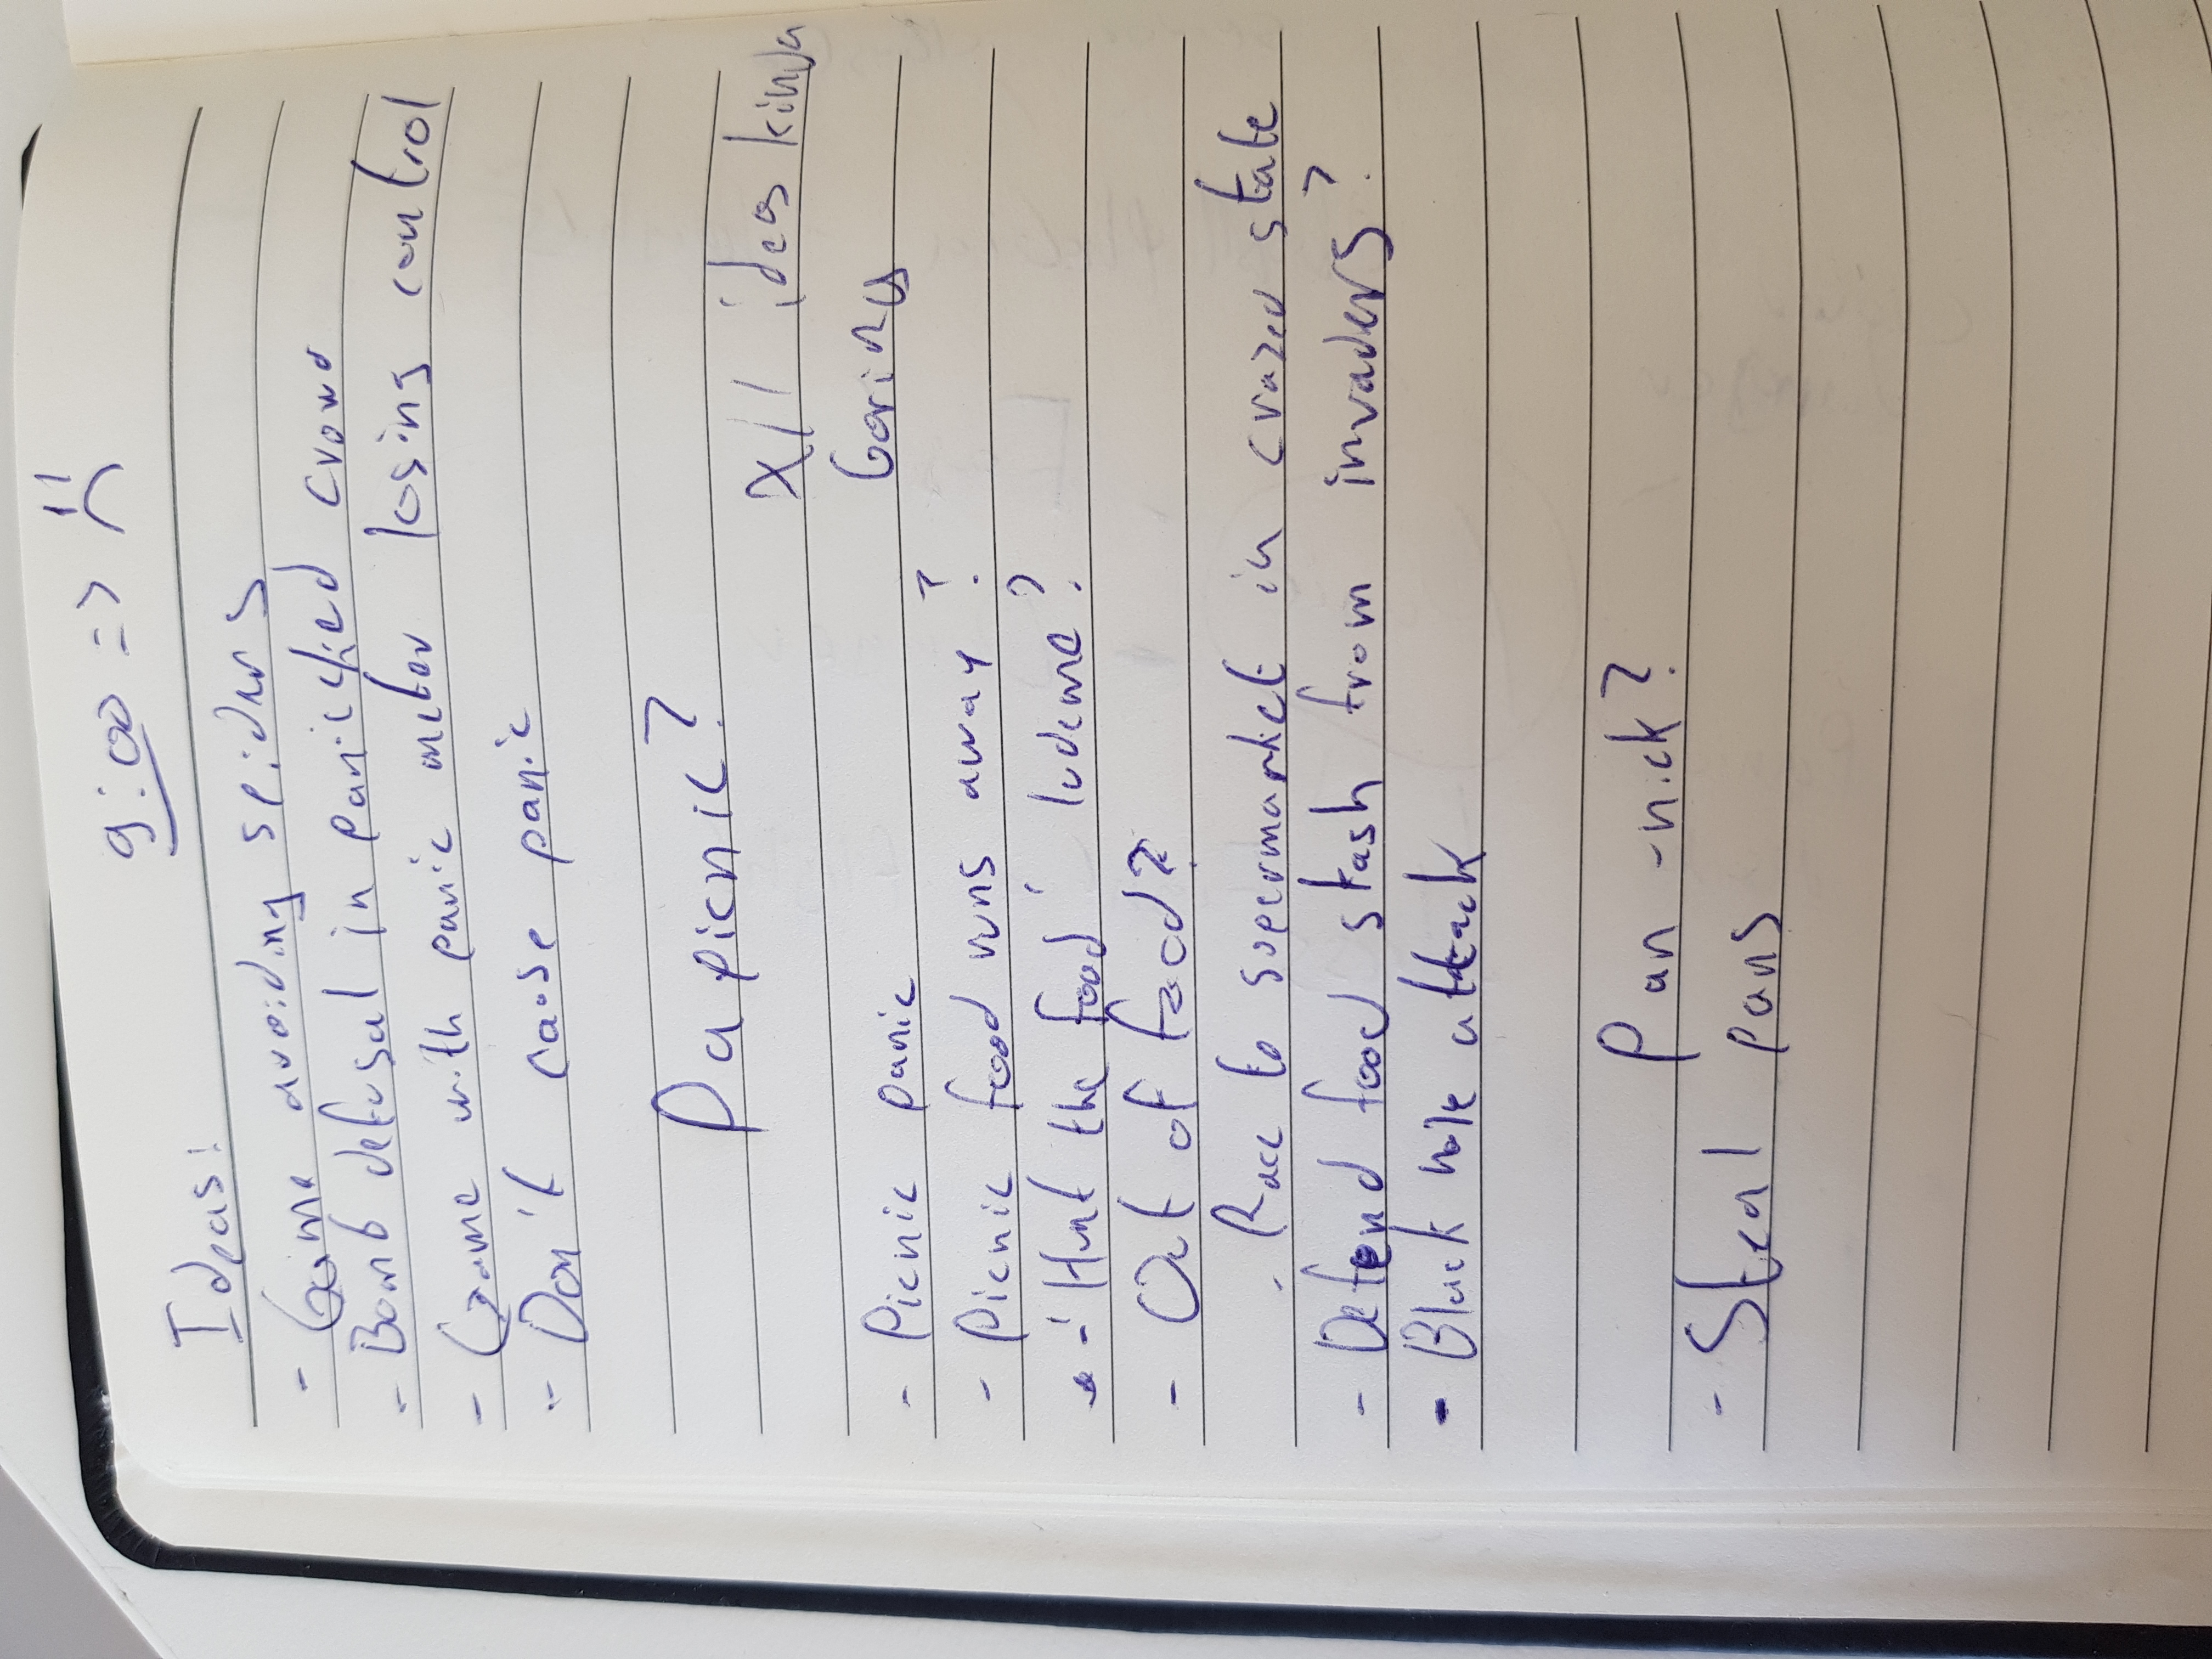 9:00 => :(
Ideas:
- Game avoiding spiders
- Bomb defusal in panicified crowd
- Game with panic meter losing control
- Don't cause panic
Papicnic?
All ideas kinda
boring
- Picnic panic
- Picnic food runs away?
- 'Hunt the food' ludeme?
- Out of food?
- Race to supermarket in crazed state
- Defend food stash from invaders?
- Black hole attack
Pan-nick?
- Steal pans